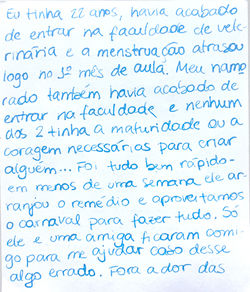 Eu tinha 22 anos, havia acabado
de entrar na faculdade de vete-
rinária e a menstruação atrasou
logo no 1º mês de aula. Meu namo
rado também havia acabado de
entrar na faculdade e nenhum
dos 2 tinha a maturidade ou a
coragem necessários para criar
alguém... Foi tudo bem rápido-
em menos de uma semana ele ar-
ranjou o remédio e aproveitamos
o carnaval para fazer tudo. Só
ele e uma amiga ficaram comi-
go para me ajudar caso desse
algo errado. Fora a dor das